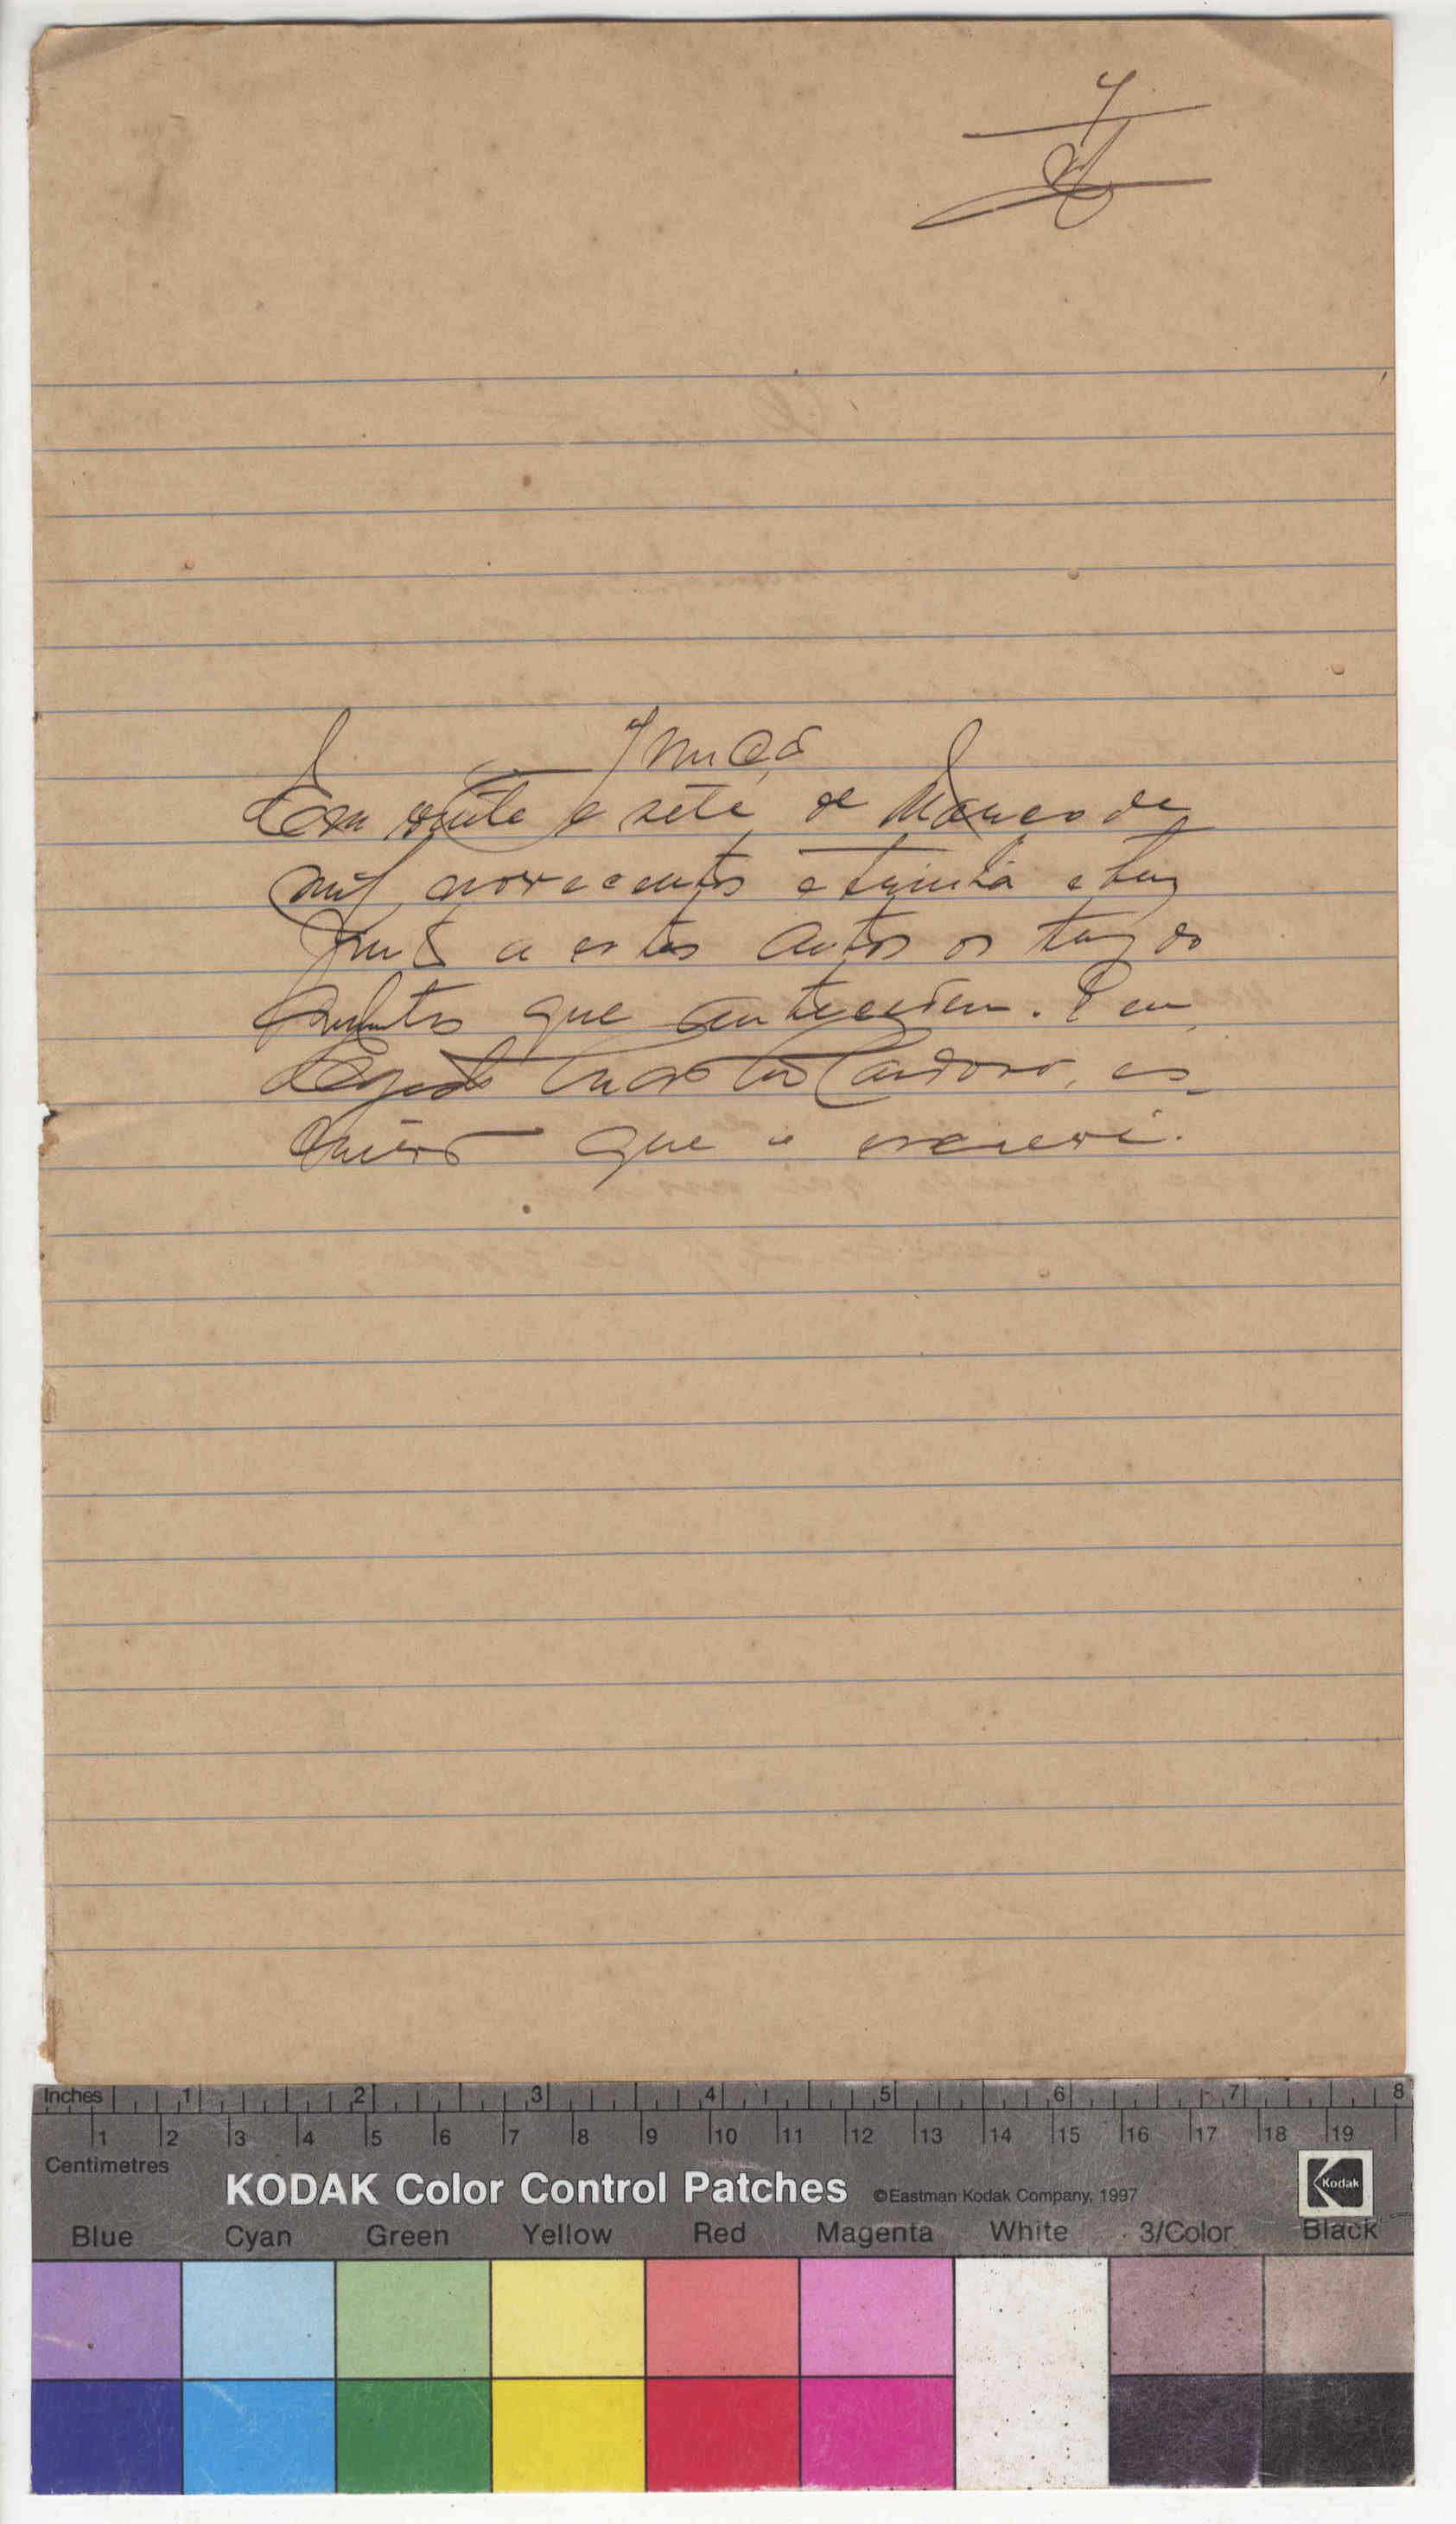 7
Juncção
Em vinte e sete de Março de
mil novecentos e trinta e tres
junto a estes autos os tres do
cumentos que antecedem. E eu
Cardoso, es
crivão que o escrevi.
Inches 1 2 3 4 5 6 7 8
1 2 3 4 5 6 7 8 9 10 11 12 13 14 15 16 17 18 19
Centimetres
KODAK Color Control Patches ©Eastman Kodak Company, 1997 Kodak
Blue Cyan Green Yellow Red Magenta White 3/Color Black